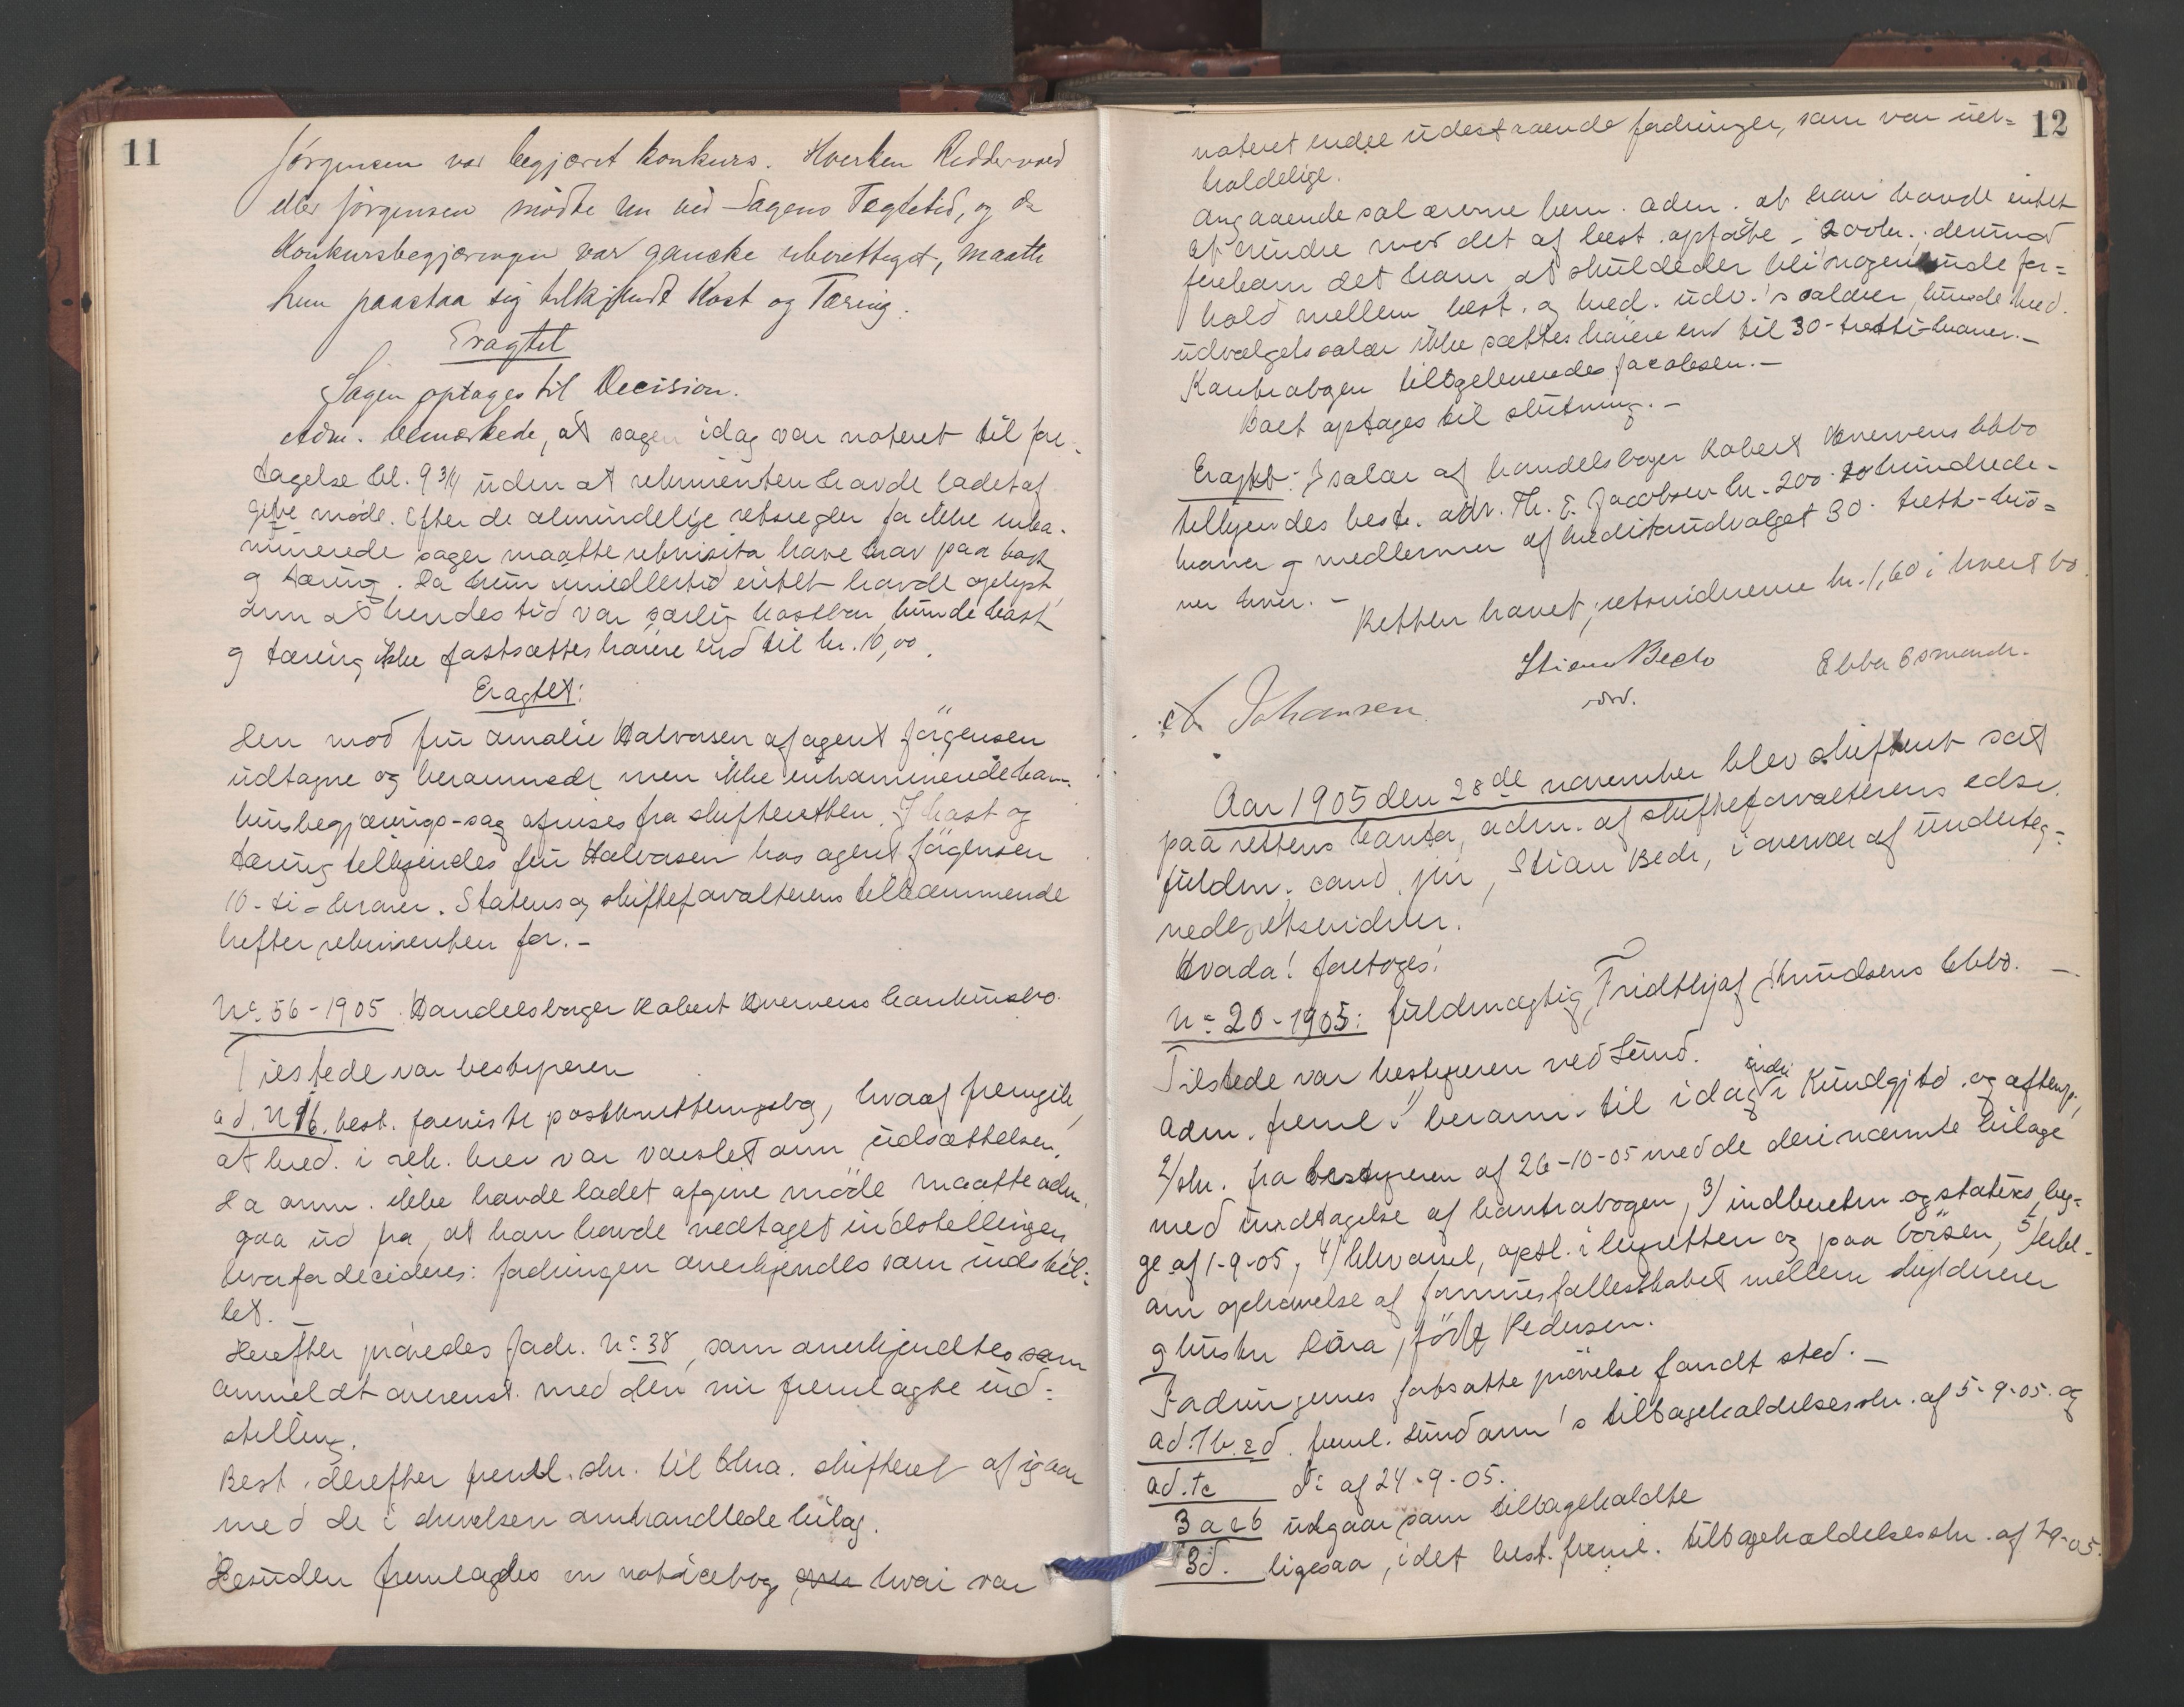 11
Jörgensen var begjæret konkurs. Hverken Reddervold
eller Jörgensen mödte nu ved Sagens Tægtetid, og da
Konkursbegjæringen var ganske uberettiget, maatte
hun paastaa sig tilkjendt Kost og Tæring.
Eragtet
Sagen optages til Decision.
Adm. bemærkede, at sagen idag var noteret til fore-
tagelse kl. 9 3/4 uden at rekvirenten havde ladet af
give möde. Efter de almindelige retsregler for ikke inka-
minerede sager maatte rekvisita have krav paa kost
og tæring. Da hun imidlertid intet havde oplyst
om at hendes tid var særlig kostbar, kunde kost
og tæring ikke fastsættes höiere end til kr. 10,00.
Eragtet:
Den mod fru Amalie Halvorsen af agent Jörgensen
udtagne og berammede men ikke inkaminerede kon-
kursbegjærings-sag afvises fra skifteretten. I kost og
tæring tilkjendes fru Halvorsen hos agent Jörgensen
10 - ti - kroner. Statens og skifteforvalterens tilkommende
hefter rekvirenten for. -
No. 56 - 1905. Handelsborger Robert Kvervens konkursbo.
Tilstede var bestyreren
ad. N 16. best. foreviste postkvitteringsbog, hvoraf fremgik,
at kred. i rek. brev var varslet om udsættelsen.
Da anm. ikke havde ladet afgive möde maatte adm.
gaa ud fra, at han havde vedtaget indstillingen
hvorfor decideres: fordringen anerkjendes som indstil-
let.
Herefter prövedes fordr. No: 38, som anerkjendtes som
anmeldt overenst. med den nu fremlagte ind-
stilling.
Best. derefter freml. skr. til Chra. skifteret af igaar
med de i skrivelsen omhandlede bilag.
Desuden fremlagdes en noticebog, hvori var
12
noteret endel udestaaende fordringer, som var uer-
holdelige.
Angaaende salærerne bem. adm. at han havde intet
at erindre mod det af best. opförte - 200 kr. derimod
forekom det ham, at skulde der bli nogenlunde for-
hold mellem best. og kred. udv.'s salær, kunde kred.
udvalgets salær ikke sættes höiere end til 30 - tretti - kroner. -
Kontrabogen tilbageleveredes Jacobsen. -
Boet optages til slutning. -
Eragtet: I salær af handelsborger Robert Kvervens kkbo
tilkjendes best. adv. Th. E. Jacobsen kr. 200 - to hundrede -
kroner og medlemmer af kreditorudvalget 30 - tretti - kro-
ner hver. -
Retten hævet; retsvidnerne kr. 1,60 i hvert bo.
Stian Bech
cst.
Ebba Osmundr.
A Johansen
Aar 1905 den 28de november blev skifteret sat
paa rettens kontor, adm. af skifteforvalterens edsv.
fuldm. cand. jur. Stian Bech, i overvær af underteg-
nede retsvidner.
Hvorda! foretoges:
No: 20 - 1905: fuldmægtig Fridthjof Knudsens kkbo. -
Tilstede var bestyreren ved Lund.
Adm. freml. 1/ beram. til idag indr. i Kundgjtd. og aftenp.,
2/ skr. fra bestyreren af 26-10-05 med de deri nævnte bilage
med undtagelse af kontrabogen, 3/ indberetn og status, beg-
ge af 1-9-05, 4/ opsl. i byretten og paa börsen, 5/
om ophævelse af formuesfællesskabet mellem skyldneren
og hustru Dora, född Pedersen.
Fordringernes fortsatte prövelse fandt sted. -
ad. 1b. 2d. freml. Lund anm's tilbageholdelsesskr. af 5-9-05. og
ad. 1c do af 24-9-05.
3 a c b udgaar som tilbageholdte
3d. ligesaa, idet best. freml. tilbageholdelsesskr. af 7-9-05.